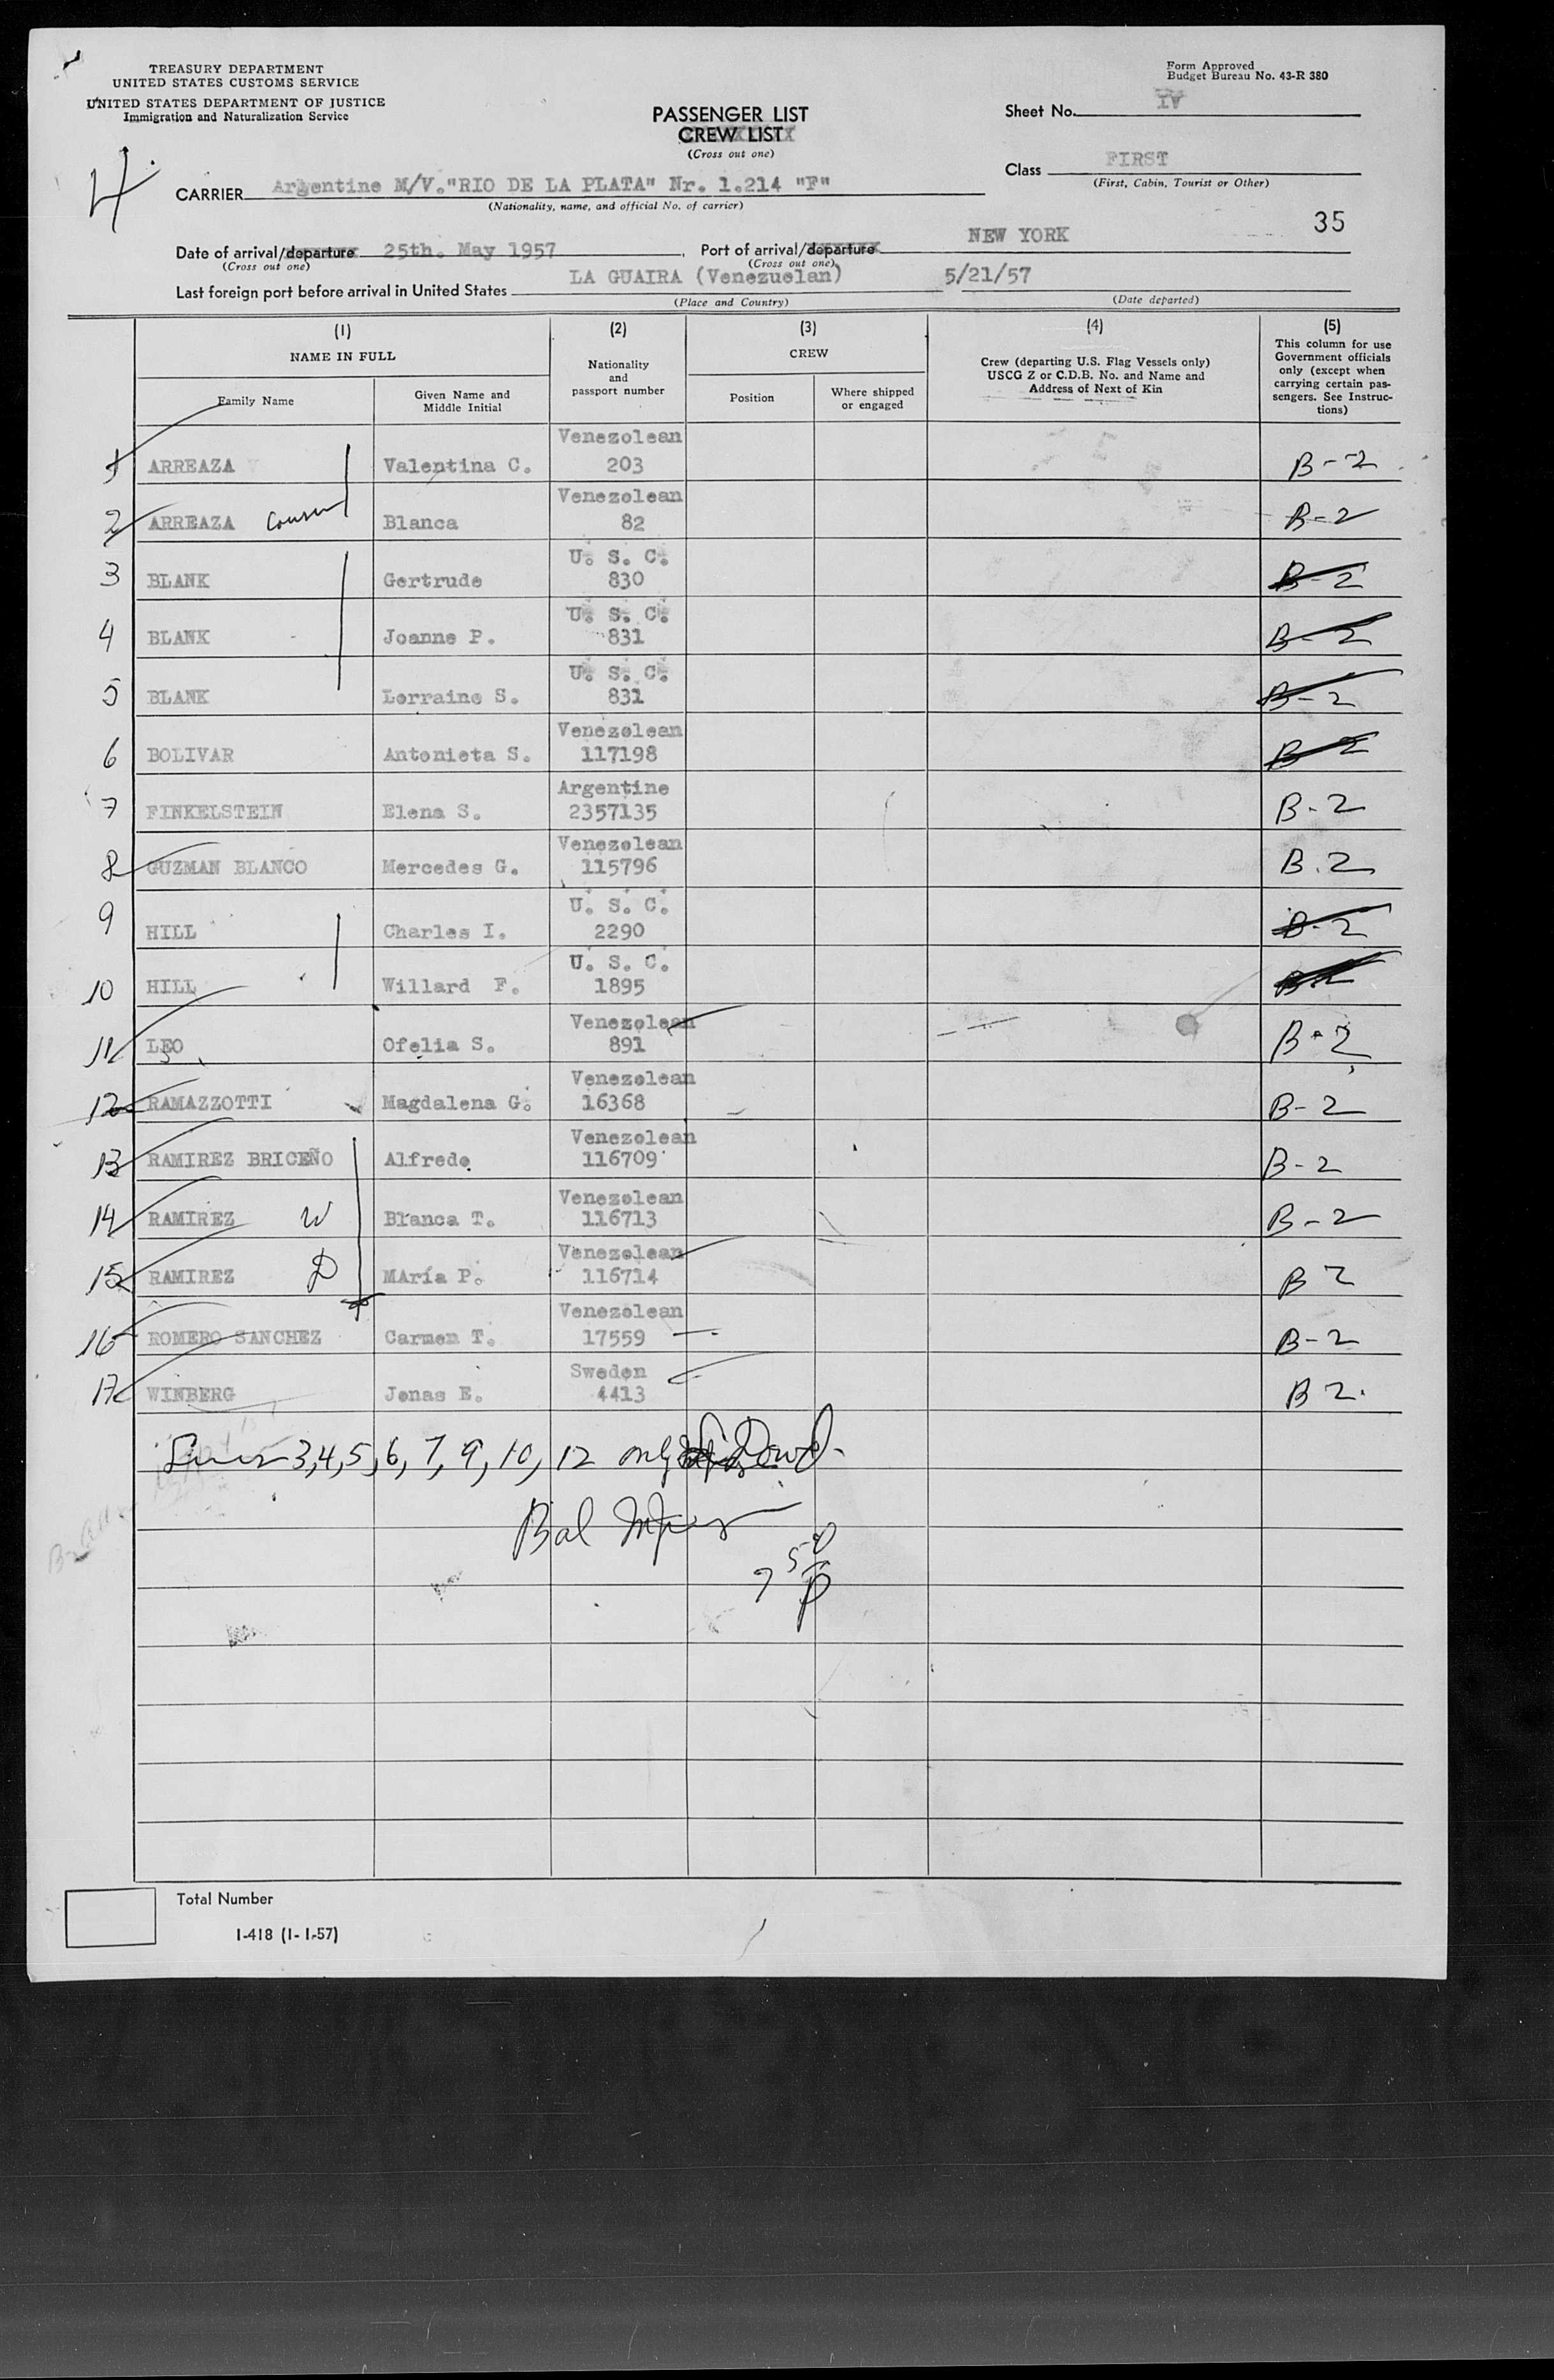 TREASURY DEPARTMENT
UNITED STATES CUSTOMS SERVICE
UNITED STATES DEPARTMENT OF JUSTICE
Immigration and Naturalization Service
Form Approved
Budget Bureau No. 43-R 380
PASSENGER LIST
CREW LIST
(Cross out one)
Sheet No. IV
4
Class FIRST
(First, Cabin, Tourist or Other)
CARRIER Argentine M/V."RIO DE LA PLATA" Nr. 1.214 "F"
(Nationality, name, and official No. of carrier)
35
Date of arrival/departure 25th. May 1957, Port of arrival/departure NEW YORK
(Cross out one) (Cross out one)
Last foreign port before arrival in United States LA GUAIRA (Venezuelan) 5/21/57
(Place and Country) (Date departed)
(1) (2) (3) (4) (5)
NAME IN FULL
Family Name
Given Name and Middle Initial
Nationality and passport number
CREW
Position
Where shipped or engaged
Crew (departing U.S. Flag Vessels only)
USCG Z or C.D.B. No. and Name and
Address of Next of Kin
This column for use
Government officials
only (except when
carrying certain pas-
sengers. See Instruc-
tions)
1 ARREAZA Valentina C. Venezolean 203 B-2
2 ARREAZA Cousin Blanca Venezolean 82 B-2
3 BLANK Gertrude U. S. C. 830 B-2
4 BLANK Joanne P. U. S. C. 831 B-2
5 BLANK Lorraine S. U. S. C. 831 B-2
6 BOLIVAR Antonieta S. Venezolean 117198 B-2
7 FINKELSTEIN Elena S. Argentine 2357135 B-2
8 GUZMAN BLANCO Mercedes G. Venezolean 115796 B.2
9 HILL Charles I. U. S. C. 2290 B-2
10 HILL Willard F. U. S. C. 1895 B-2
11 LEO Ofelia S. Venezolean 891 B-2
12 RAMAZZOTTI Magdalena G. Venezolean 16368 B-2
13 RAMIREZ BRICEÑO Alfredo Venezolean 116709 B-2
14 RAMIREZ W Blanca T. Venezolean 116713 B-2
15 RAMIREZ D MAría P. Venezolean 116714 B 2
16 ROMERO SANCHEZ Carmen T. Venezolean 17559 B-2
17 WINBERG Jonas E. Sweden 4413 B 2.
3,4,5,6,7,9,10,12 only
Bal
7 50 P
Total Number
I-418 (1-1-57)